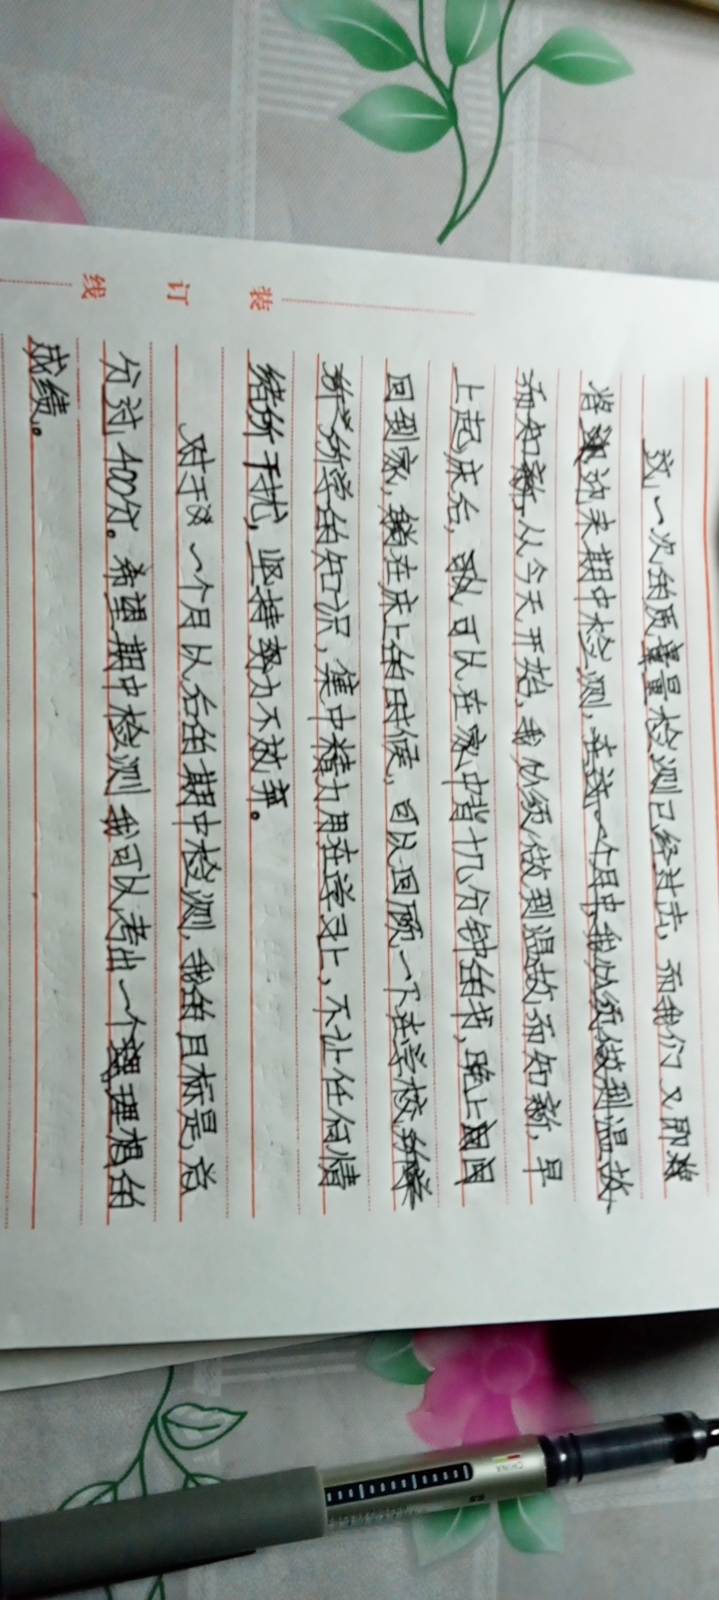 这一次的质量检测已经过去，而我们又即将
将迎来期中检测，在这一个月中我必须做到温故
而知新。从今天开始，我必须做到温故而知新，早
上起床后，我可以在家中背十几分钟的书，晚上
回到家，躺在床上的时候，可以回顾一下在学校
所学的知识，集中精力用在学习上，不让任何情
绪所干扰，坚持努力不放弃。
对于这一个月以后的期中检测，我的目标是总
分过400分。希望期中检测我可以考出一个理想的
成绩。
装
订
线
CHINA